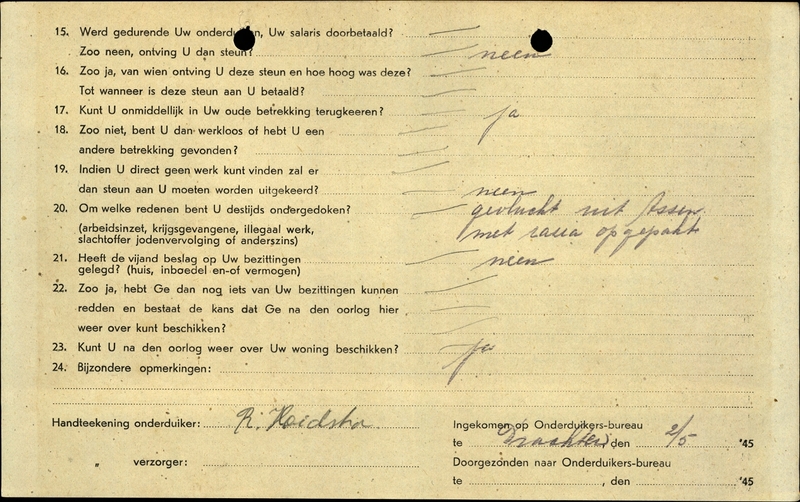 15. Werd gedurende Uw onderduiken, Uw salaris doorbetaald?
Zoo neen, ontving U dan steun? neen
16. Zoo ja, van wien ontving U deze steun en hoe hoog was deze?
Tot wanneer is deze steun aan U betaald?
17. Kunt U onmiddellijk in Uw oude betrekking terugkeeren? ja
18. Zoo niet, bent U dan werkloos of hebt U een
andere betrekking gevonden?
19. Indien U direct geen werk kunt vinden zal er
dan steun aan U moeten worden uitgekeerd? neen
20. Om welke redenen bent U destijds ondergedoken? gevlucht uit Assen,
(arbeidsinzet, krijgsgevangene, illegaal werk, met razia opgepakt
slachtoffer jodenvervolging of anderszins)
21. Heeft de vijand beslag op Uw bezittingen neen
gelegd? (huis, inboedel en-of vermogen)
22. Zoo ja, hebt Ge dan nog iets van Uw bezittingen kunnen
redden en bestaat de kans dat Ge na den oorlog hier
weer over kunt beschikken?
23. Kunt U na den oorlog weer over Uw woning beschikken? ja
24. Bijzondere opmerkingen:
Handteekening onderduiker: R. Hoidstra
verzorger:
Ingekomen op Onderduikers-bureau
te Drachten, den 2/5 '45
Doorgezonden naar Onderduikers-bureau
te , den '45